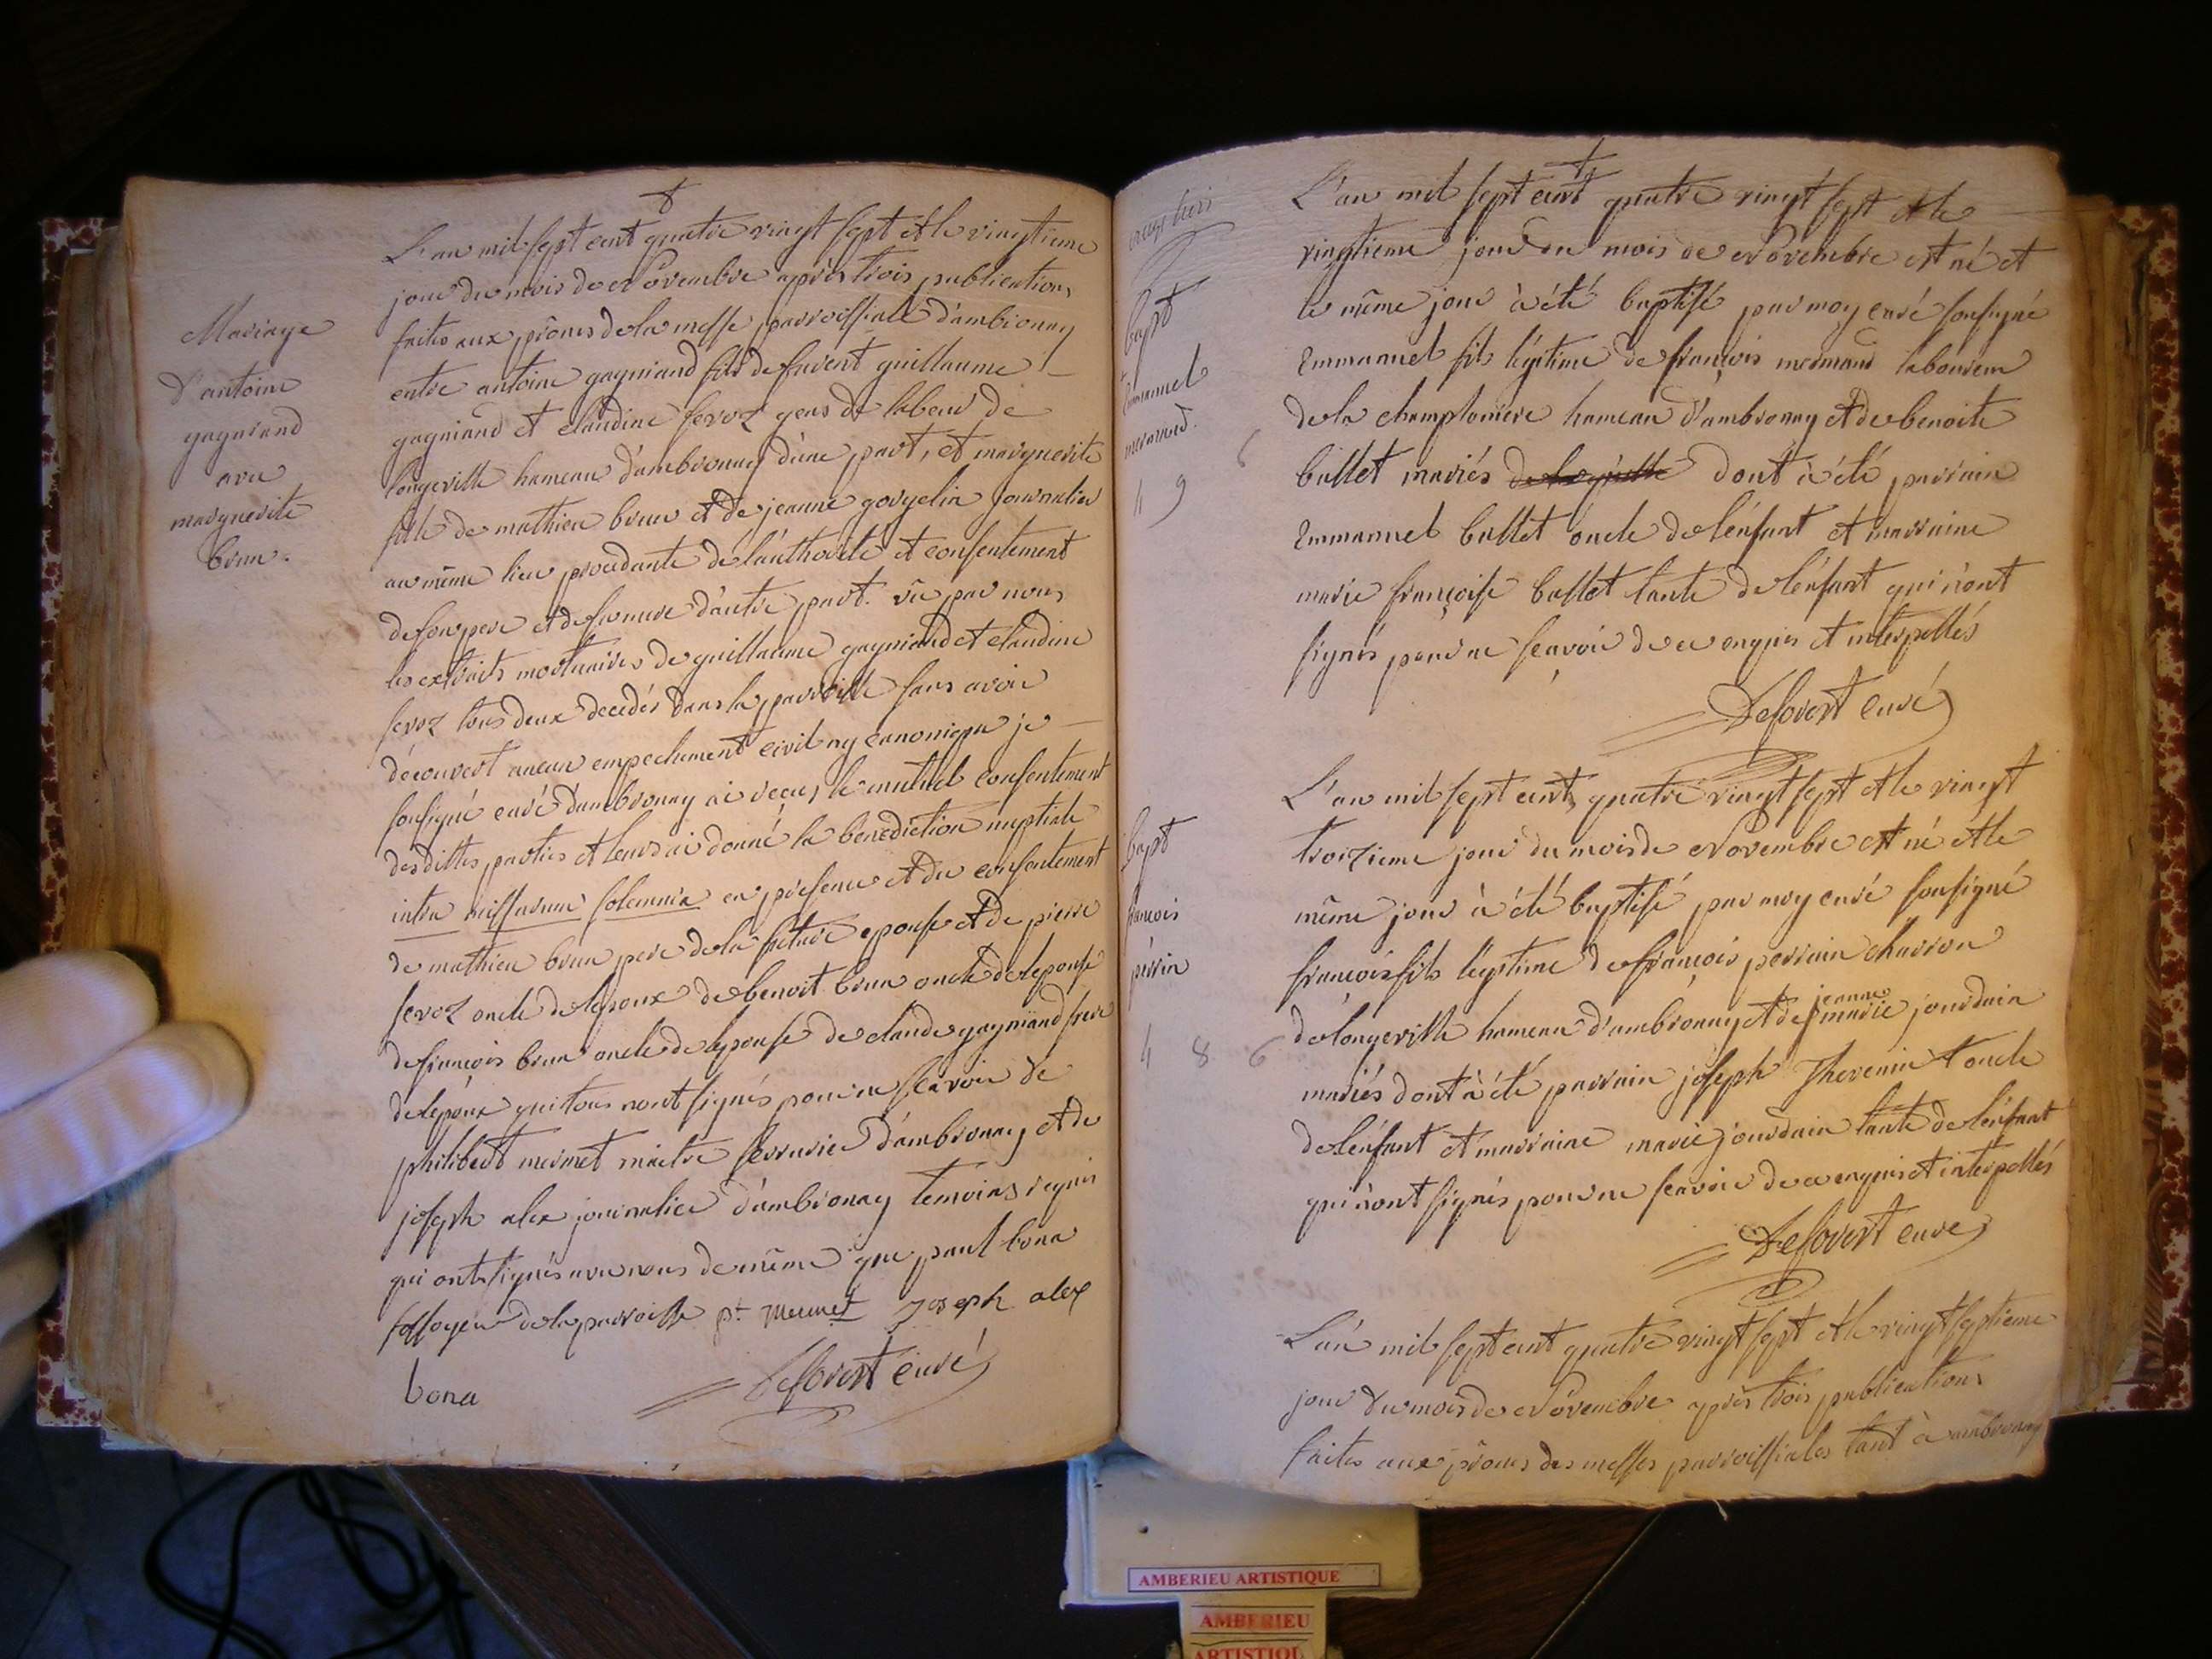 Mariage
d'antoine
gagniand
avec
marguerite
brun.
L'an mil sept cent quatre vingt sept et le vingtieme
jour du mois de Novembre après trois publications
faites aux prônes de la messe parroissiale d'ambronay
entre antoine gagniand fils de fuent guillaume
gagniand et claudine feroz gens de labeur de
longeville hameau d'ambronay d'une part, et marguerite
fille de mathieu brun et de jeanne gorgelin journalier
au même lieu procedante de l'authorité et consentement
de son pere et de sa mere d'autre part. vû par nous
les extraits mortuaires de guillaume gagniand et claudine
feroz tous deux decedés dans la parroisse sans avoir
découvert aucun empechement civil ny canonique je
sousigné curé d'ambronay ai reçu le mutuel consentement
des dittes parties et leurs ai donné la benediction nuptiale
intra missarum solemnia en presence et du consentement
de mathieu brun pere de la future epouse et de pierre
feroz oncle de lepoux de benoit brun oncle de lepouse
de françois brun oncle de lepouse de claude gagniand frere
de lepoux qui tous n'ont signés pour ne sçavoir de
philibert mermet maitre serrurier d'ambronay et de
joseph alex journalier d'ambronay temoins requis
qui ont signés avec nous de même que paul bona
fossoyeur de la parroisse pt mermet Joseph alex
bona Deforest curé
bapt
Emmanuel
mermand.
4 9 6
L'an mil sept cent quatre vingt sept et le
vingtieme jour du mois de Novembre est né et
le même jour à été baptisé par moy curé sousigné
Emmanuel fils légitime de françois mermand laboureur
de la championiere hameau d'ambronay et de benoite
ballet mariés dont à été parrain
Emmanuel ballet oncle de l'enfant et marraine
marie françoise ballet tante de l'enfant qui n'ont
signés pour ne sçavoir de ce enquis et interpellés
Deforest curé
bapt
françois
perrin
4 8 6
L'an mil sept cent quatre vingt sept et le vingt
troizieme jour du mois de Novembre est né et le
même jour à été baptisé par moy curé sousigné
françois fils légitime de françois perrin charron
de longeville hameau d'ambronay et de jeanne marie jourdain
mariés dont à été parrain joseph Thevenin oncle
de l'enfant et marraine marie jourdain tante de l'enfant
qui n'ont signés pour ne sçavoir de ce enquis et interpellés
Deforest curé
L'an mil sept cent quatre vingt sept et le vingt septieme
jour du mois de Novembre après trois publications
faites aux prônes des messes parroissiales tant à ambronay
AMBERIEU ARTISTIQUE
AMBERIEU
ARTISTIQU